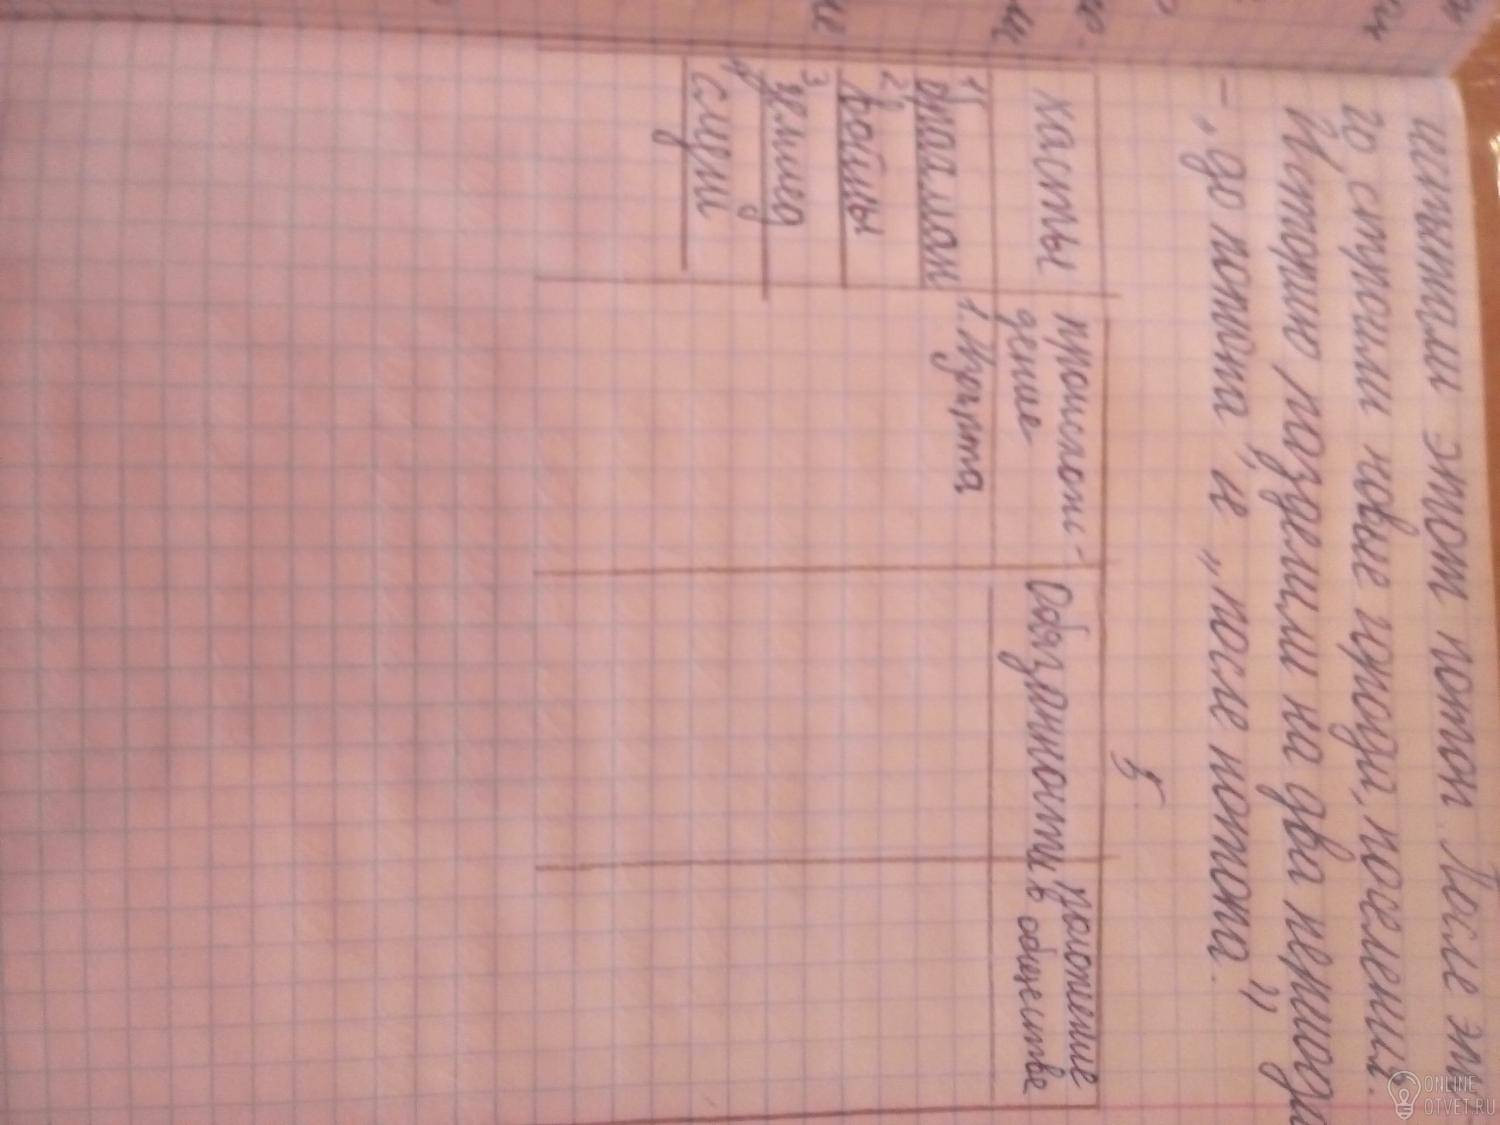 шпимали этот потоп. После это
го строили новые города, поселения.
Историю поделили на два периода
– „до потопа" и „после потопа".
5.
Касты
происхож-
дение
Обязанности
положение
в обществе
1 брахман
1. Изо рта
2) войны
3 землед
4 слуги
ONLINE
OTVET.RU